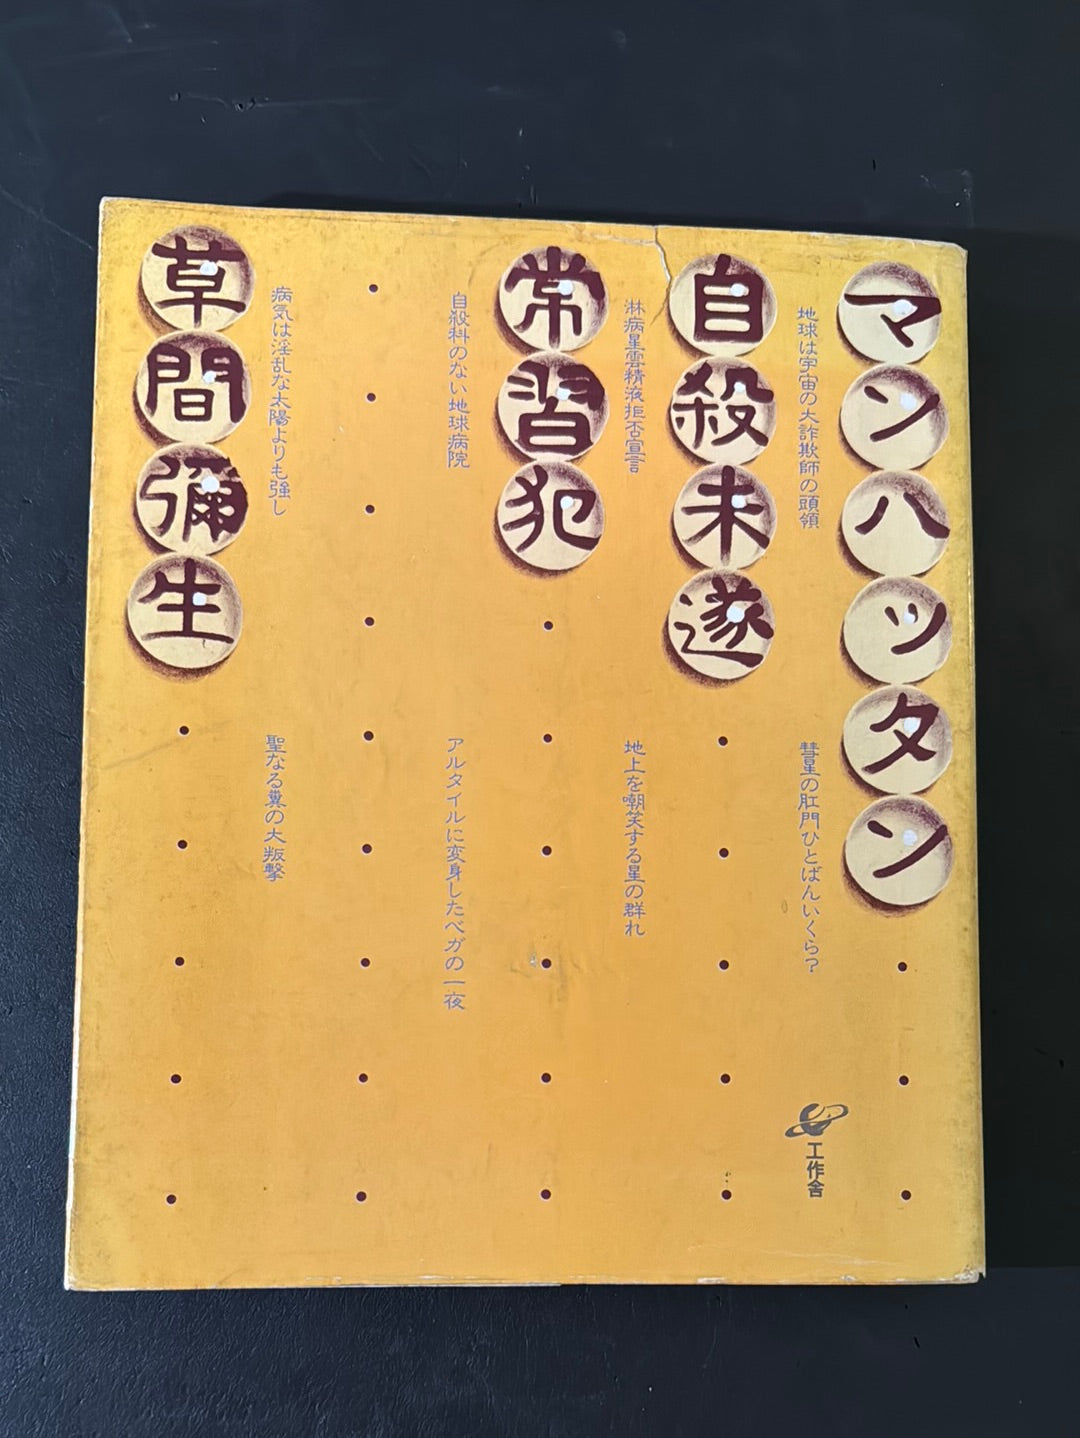 マンハッタン
地球は宇宙の大詐欺師の頭領
彗星の肛門ひとばんいくら?
自殺未遂
淋病星雲精液拒否宣言
地上を嘲笑する星の群れ
常習犯
自殺科のない地球病院
アルタイルに変身したベガの一夜
病気は淫乱な太陽よりも強し
聖なる糞の大叛撃
草間彌生
工作舎